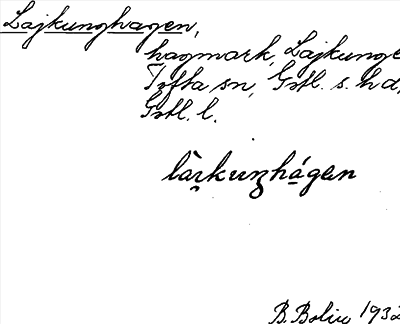 Lajkunghagen,
hagmark, Lajkunge
Tofta sn, Gotl. s. hd,
Gotl. l.
làrkuŋhágen
B. Bolin 1932